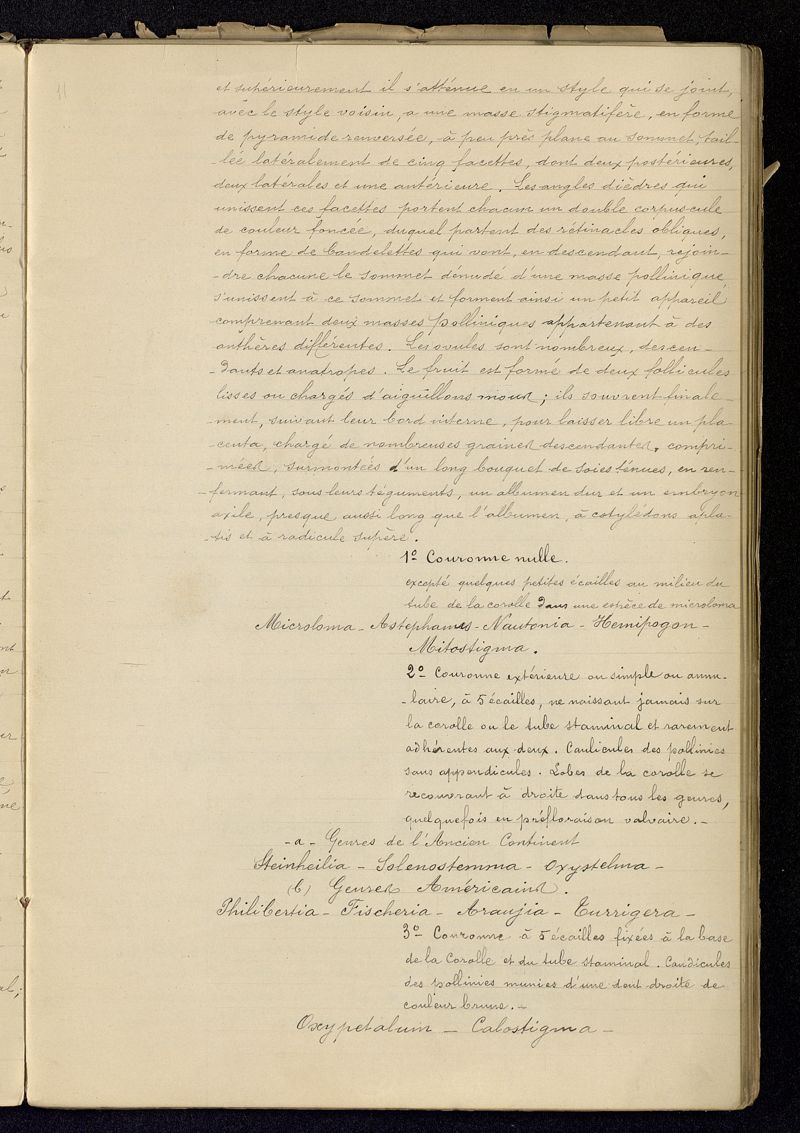 11
et supérieurement il s'atténue en un style qui se joint,
avec le style voisin, a une masse stigmatifère, en forme
de pyramide renversée, à peu près plane au sommet, tail-
-lée latéralement de cinq facettes, dont deux postérieures,
deux latérales et une antérieure. Les angles dièdres qui
unissent ces facettes portent chacun un double corpuscule
de couleur foncée, duquel partent des rétinacles obliques,
en forme de bandelettes qui vont, en descendant, rejoin-
-dre chacune le sommet dénudé d'une masse pollinique,
s'unissent à ce sommet et forment ainsi un petit appareil
comprenant deux masses polliniques appartenant à des
anthères différentes. Les ovules sont nombreux, descen-
-dants et anatropes. Le fruit est formé de deux follicules
lisses ou chargés d'aiguillons mous; ils souvrent finale-
-ment, suivant leur bord interne, pour laisser libre un pla-
centa, chargé de nombreuses graines descendantes, compri-
-mées, surmontées d'un long bouquet de soies ténues, en ren-
-fermant, sous leurs téguments, un albumen dur et un embryon
axile, presque aussi long que l'albumen, à cotylédons apla-
-tis et à radicule supère.
1º Couronne nulle.
excepté quelques petites écailles au milieu du
tube de la corolle dans une espèce de microloma
Microloma - Astephamus - Nautonia - Hemipogon -
Mitostigma.
2º Couronne extérieure ou simple ou annu-
-laire, à 5 écailles, ne naissant jamais sur
la corolle ou le tube staminal et rarement
adhérentes aux deux. Caulicules des pollinies
sans appendicules. Lobes de la corolle se
recouvrant à droite dans tous les genres,
quelquefois en préfloraison valvaire. -
-a- Genres de l'Ancien Continent
Steinheilia - Solenostemma - Oxystelma -
(b) Genres Américains.
Philibertia - Fischeria - Araujia - Turrigera -
3º Couronne à 5 écailles fixées à la base
de la Corolle et du tube staminal. Caudicules
des pollinies munies d'une dent droite de
couleur brune. -
Oxypetalum - Calostigma -